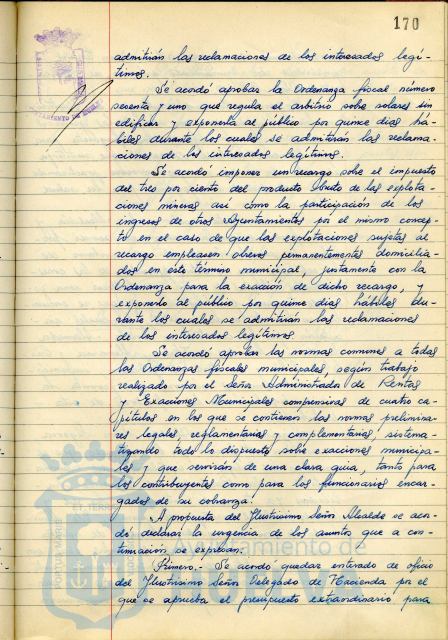 170
admitirán las reclamaciones de los interesados legí-
timos.
Se acordó aprobar la Ordenanza fiscal número
sesenta y uno que regula el arbitrio sobre solares sin
edificar y exponerla al público por quince días há-
biles durante los cuales se admitirán las reclama-
ciones de los interesados legítimos.
Se acordó imponer un recargo sobre el impuesto
del tres por ciento del producto bruto de las explota-
ciones mineras así como la participación de los
ingresos de otros Ayuntamientos por el mismo concep-
to en el caso de que las explotaciones sujetas al
recargo empleasen obreros permanentemente domicilia-
dos en este término municipal, juntamente con la
Ordenanza para la exacción de dicho recargo, y
exponerlo al público por quince días hábiles du-
rante los cuales se admitirán las reclamaciones
de los interesados legítimos.
Se acordó aprobar las normas comunes a todas
las Ordenanzas fiscales municipales, según trabajo
realizado por el Señor Administrador de Rentas
y Exacciones Municipales comprensivas de cuatro ca-
pítulos en los que se contienen las normas prelimina-
res legales, reglamentarias y complementarias, sistema-
tizando todo lo dispuesto sobre exacciones municipa-
les y que servirán de una clara guía, tanto para
los contribuyentes como para los funcionarios encar-
gados de su cobranza.
A propuesta del Ilustrísimo Señor Alcalde se acor-
dó declarar la urgencia de los asuntos que a con-
tinuación se expresan.
Primero.- Se acordó quedar enterado de oficio
del Ilustrísimo Señor Delegado de Hacienda por el
que se aprueba el presupuesto extraordinario para
Ayuntamiento de